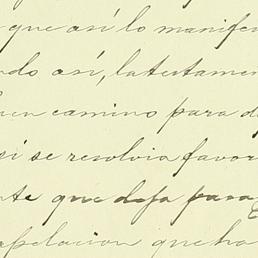 que así lo manifes
ndo así, la testamen
buen camino para d
si se resolvia favor
nte que deja para
apelacion que ha